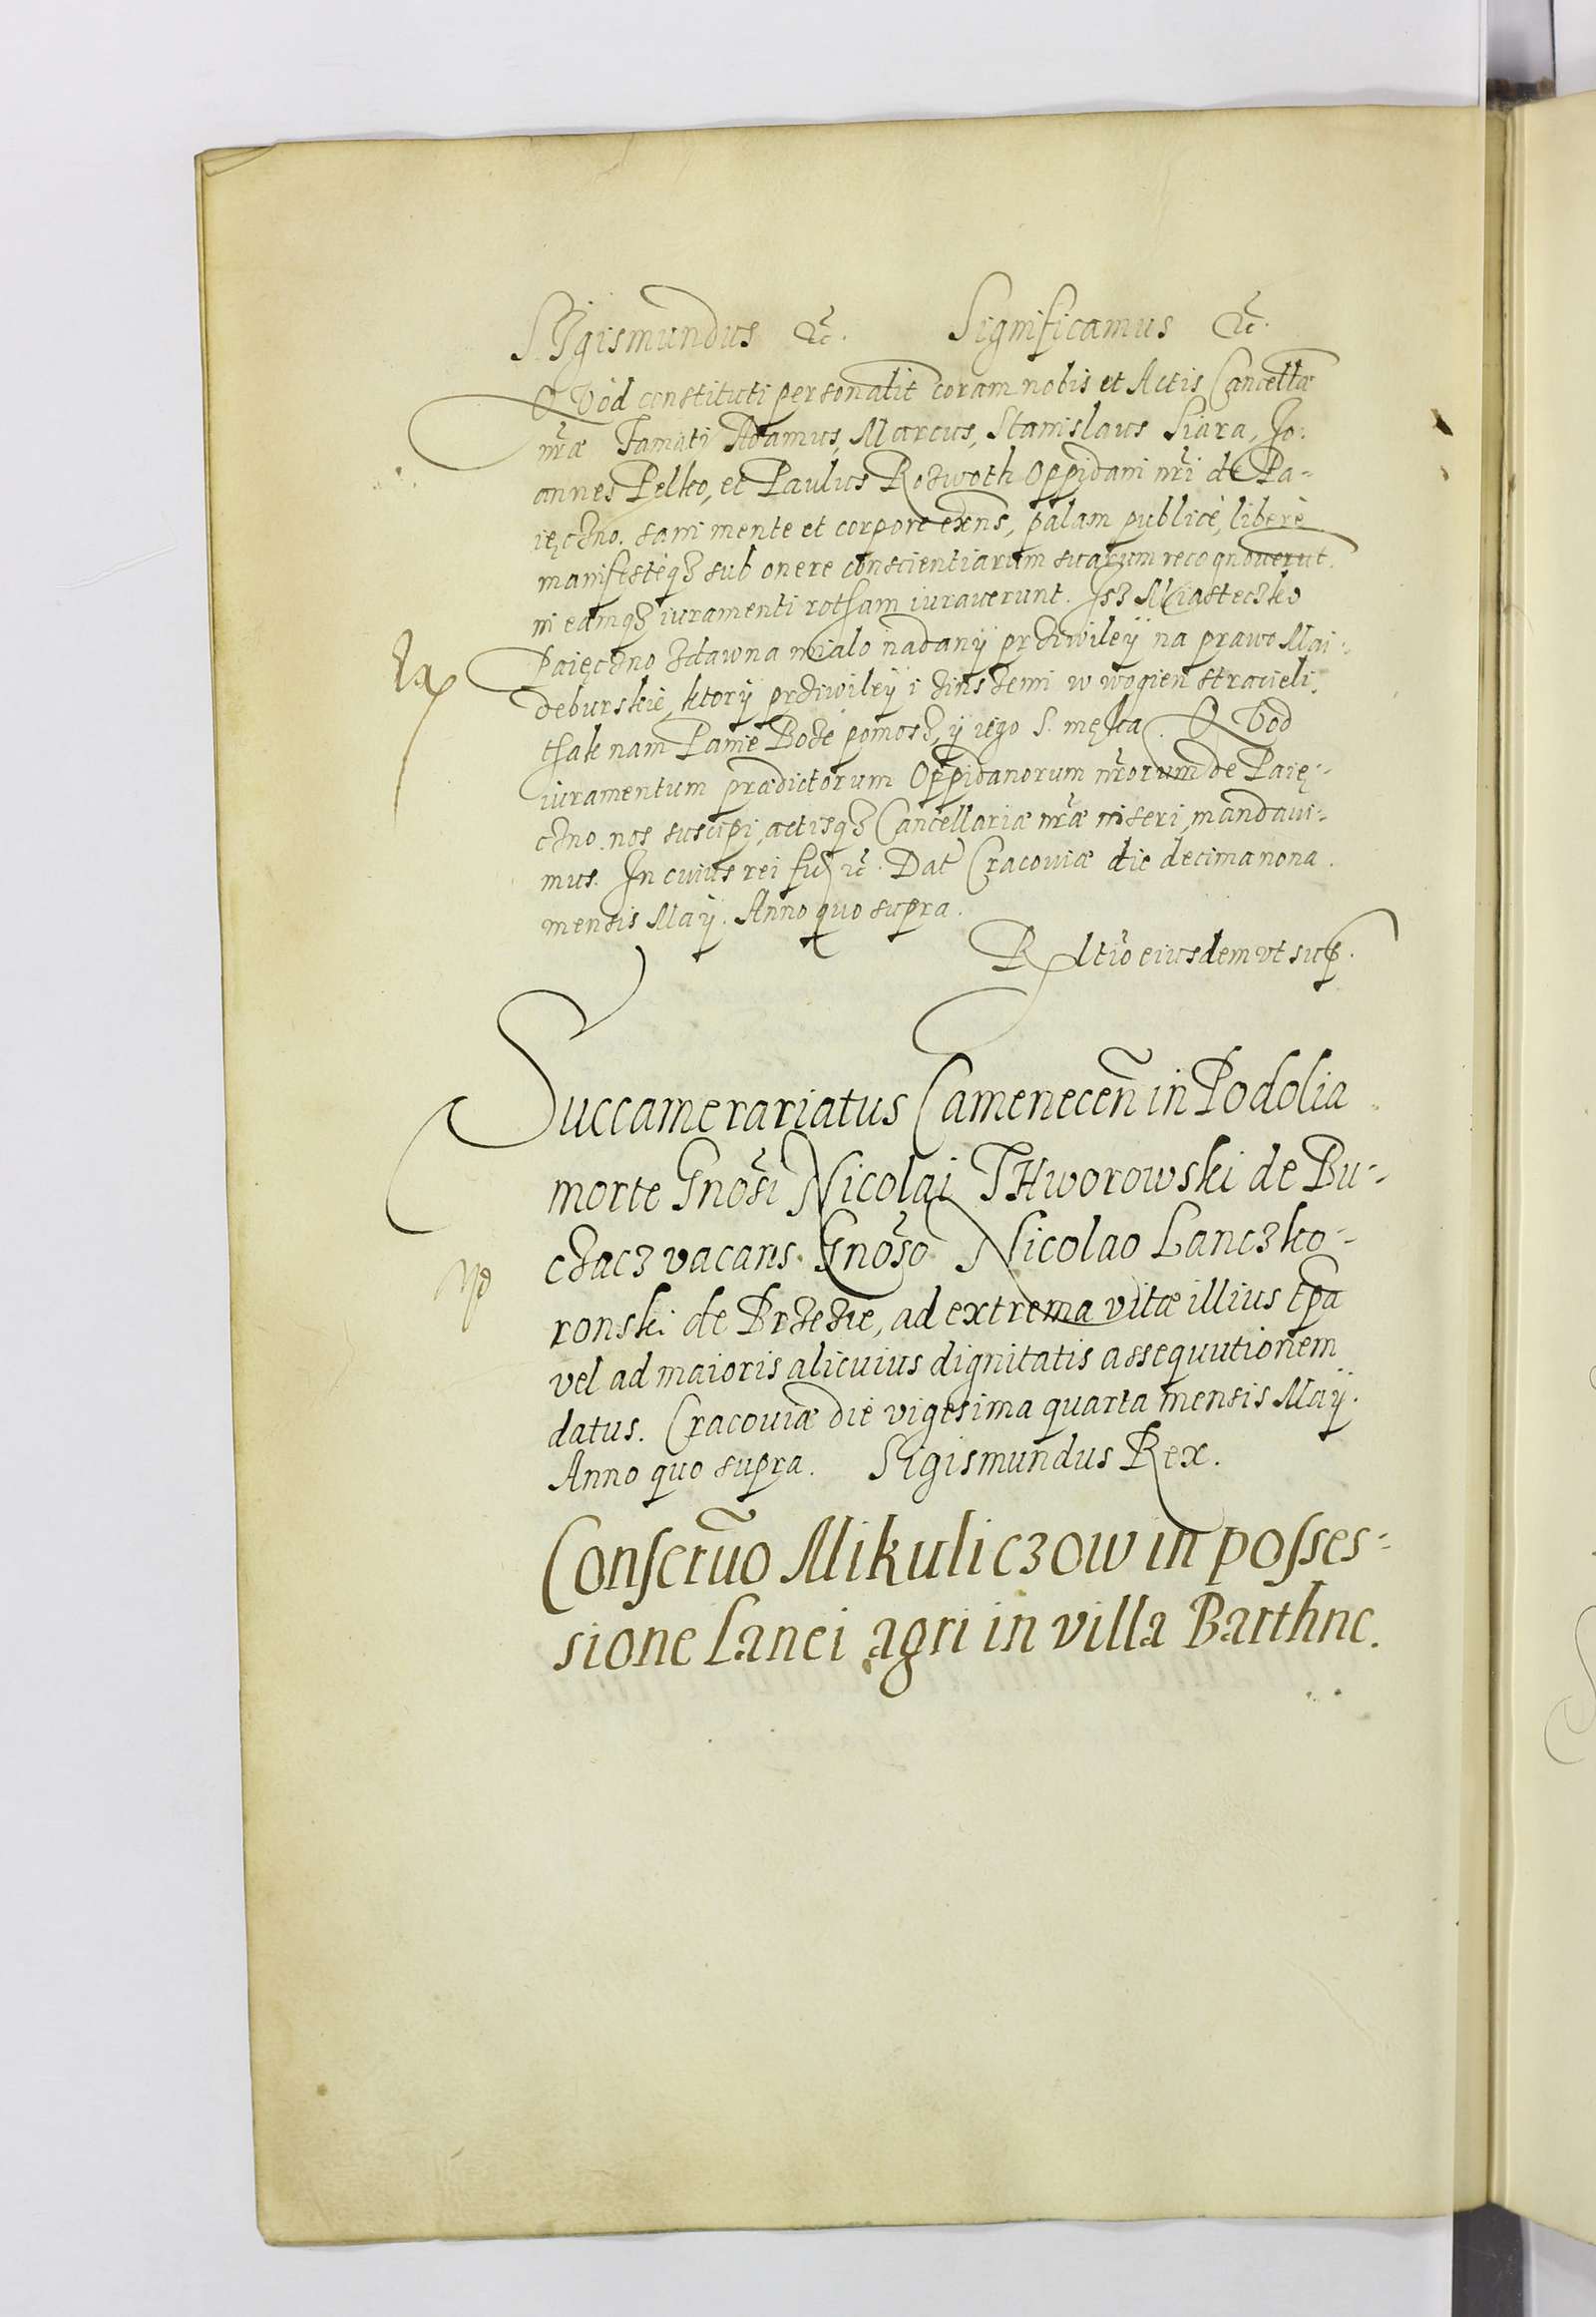 SIgismundus etc̃. Significamus etc̃.
QVod constituti personalit coram nobis et Actis Cancellæ
nr̃æ Famati Adamus, Marcus, Stanislaus Siara, Jo:
annes Pelko, et Paulus Rozwoth Oppidani nr̃i de Pa-
ięczno. sani mente et corpore exñs, palam publicè, liberè
manifestèqȝ sub onere conscientiarum suarum recognoverut.
in eamqȝ iuramenti rotham iuraverunt. Jsz Miasteczko
Paięczno zdawna mialo nadanÿ prziwileÿ na prawo Mai-
deburskie, ktorÿ prziwileÿ i zinszemi w wogien stracieli.
thak nam Panie Boże pomosz, ÿ iego S. męka. QVod
iuramentum prædictorum Oppidanorum nr̃orum de Paię-
czno. nos suscipi, actisqȝ Cancellariæ nr̃æ inseri mandavi-
mus. In cuius rei etc̃. Dat Cracoviæ die decima nona
mensis Maÿ. Anno quo supra.
Rltĩo eiusdem vt sup.
Succamerariatus Camenecen̄ in Podolia
morte Gnõsi Nicolai THworowski de Bu-
czacz vacans. Gnõso Nicolao Lanczko-
ronski de Brzezie, ad extrema vitæ illius tp̃a
vel ad maioris alicuius dignitatis assequutionem
datus. Cracoviæ die vigesima quarta mensis Maÿ.
Anno quo supra. Sigismundus Rex.
Conseruõ Mikuliczow in posses-
sione Lanei agri in villa Barthne.